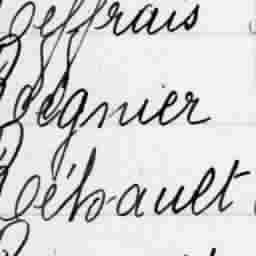 Jeffrais
Régnier
Rébault